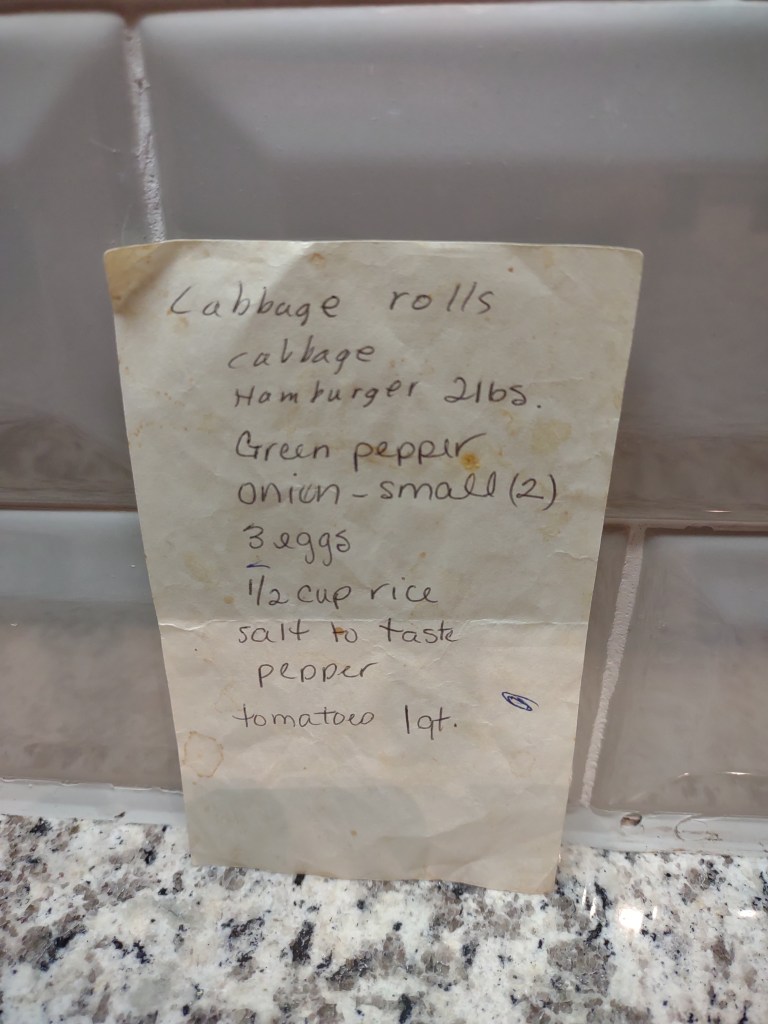 Cabbage rolls
cabbage
Hamburger 2lbs.
Green pepper
onion - small (2)
3 eggs
1/2 cup rice
salt to taste
pepper
tomatoes 1qt.